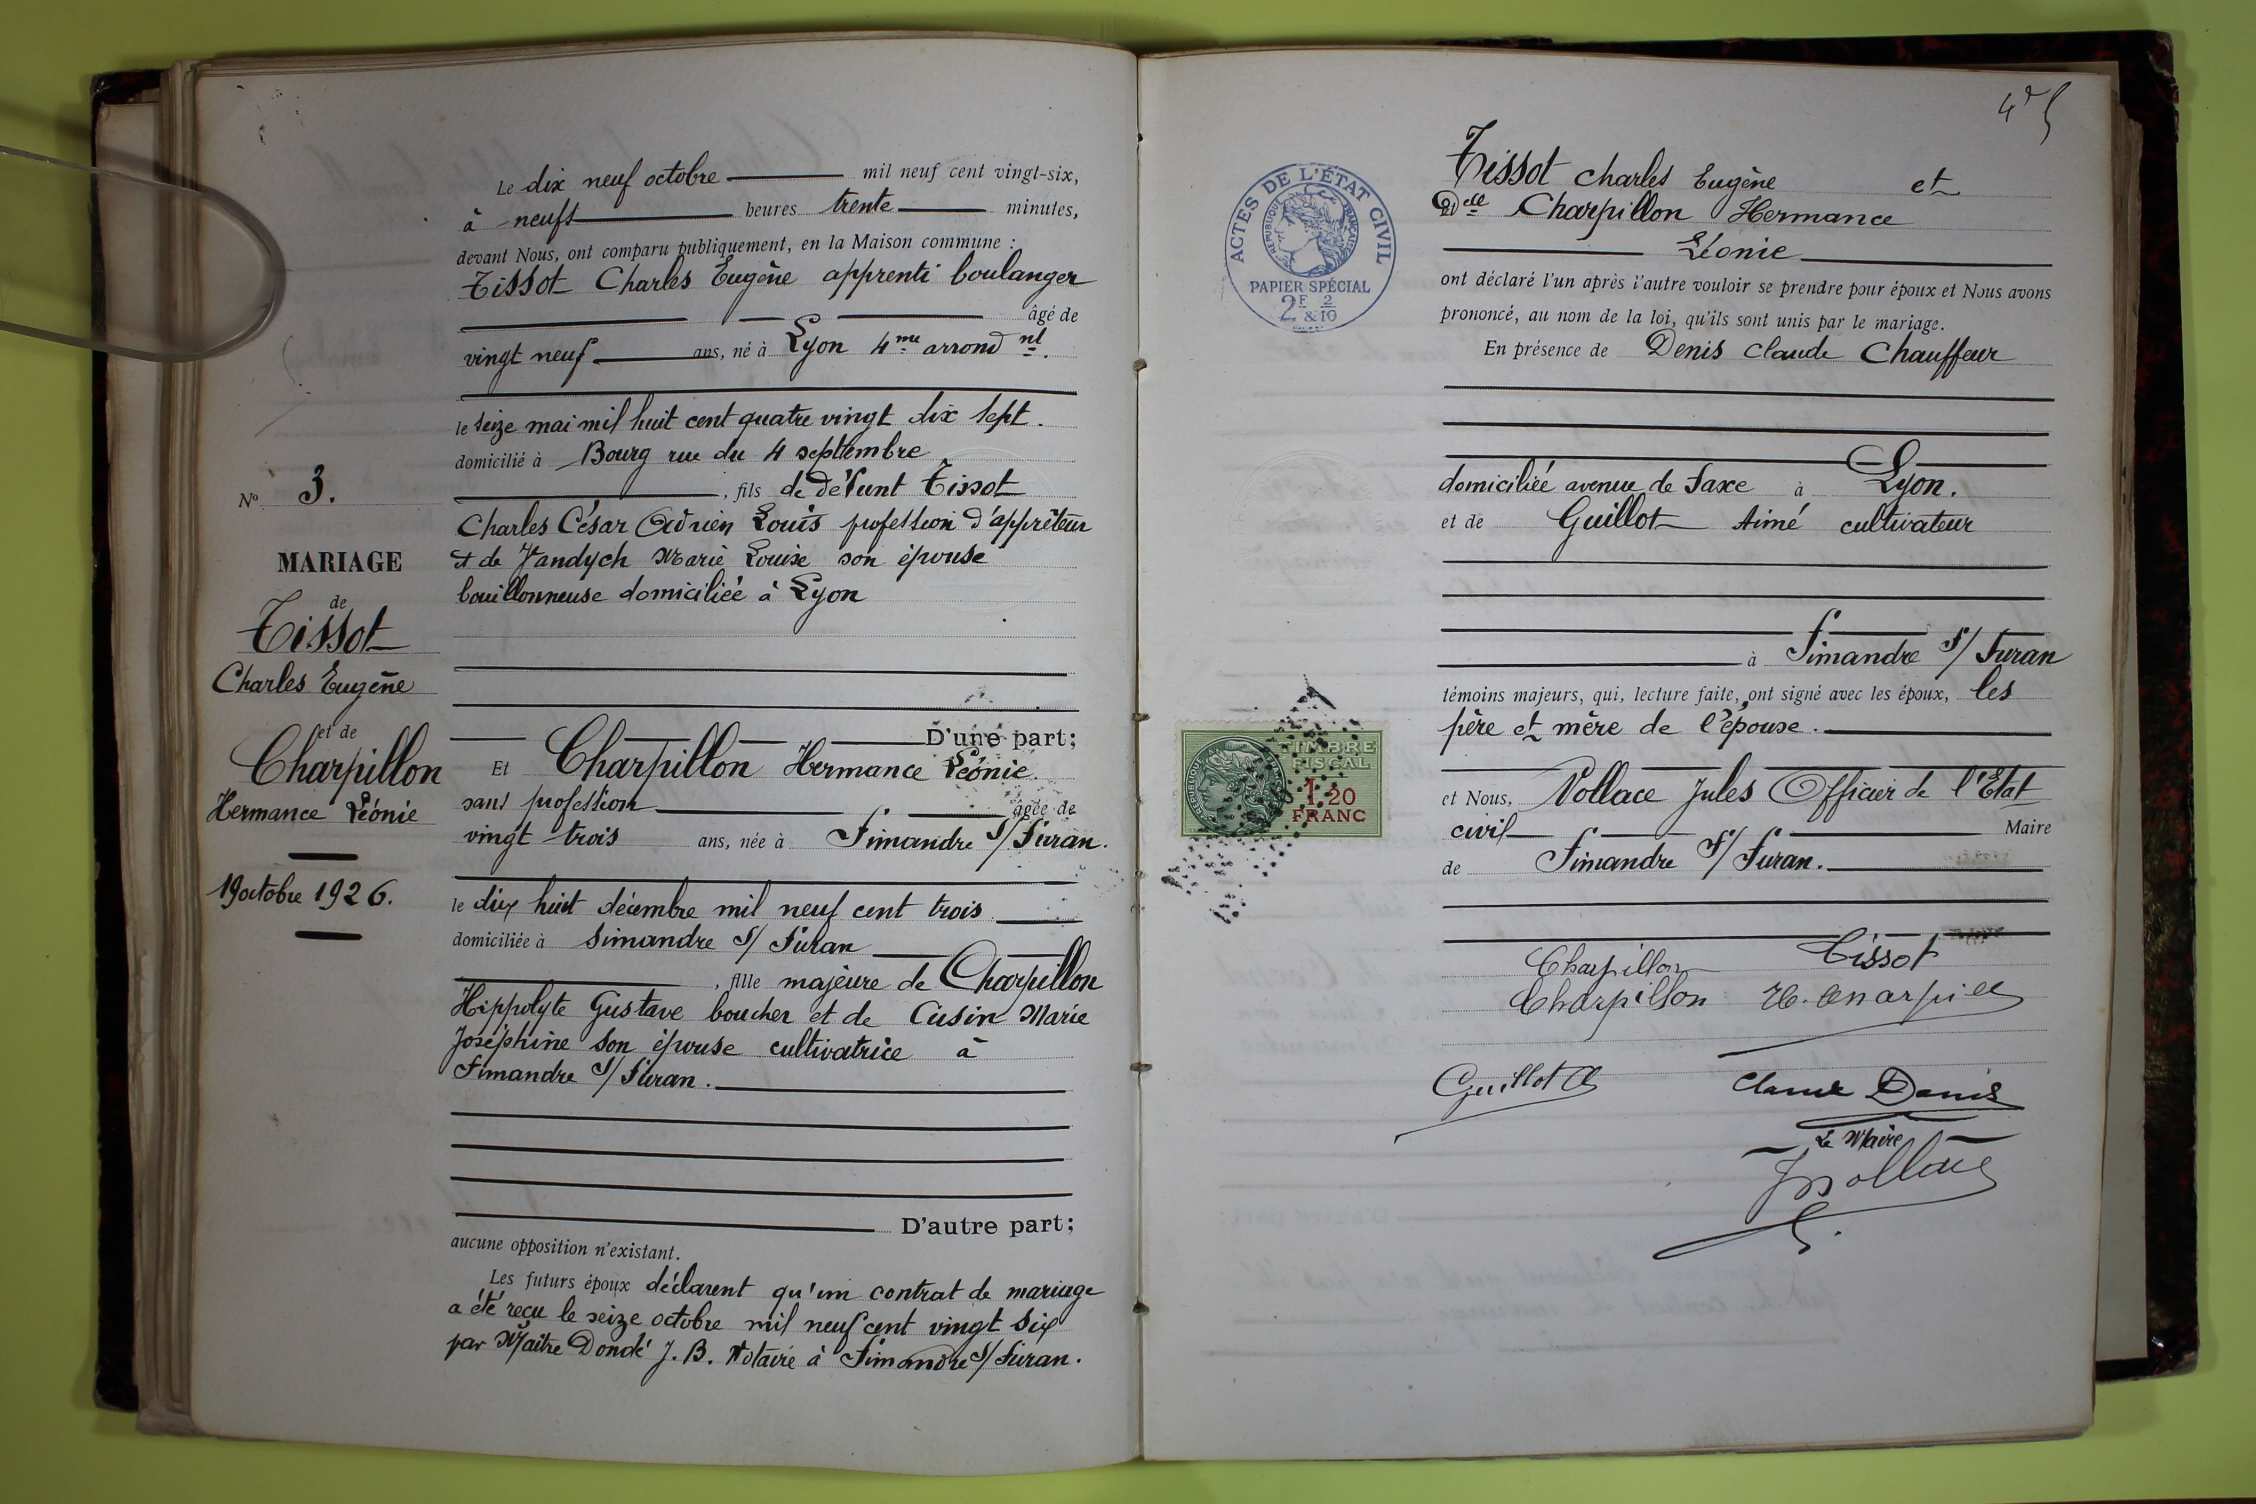 Le dix neuf octobre mil neuf cent vingt-six,
à neufs heures trente minutes,
devant Nous, ont comparu publiquement, en la Maison commune :
Tissot Charles Eugène apprenti boulanger
âgé de
vingt neuf ans, né à Lyon 4me arrondnt.
le seize mai mil huit cent quatre vingt dix sept.
domicilié à Bourg rue du 4 septembre
, fils de défunt Tissot
Charles César Adrien Louis profession d'apprêteur
et de Vandych Marie Louise son épouse
bouillonneuse domiciliée à Lyon
D'une part;
Et Charpillon Hermance Léonie.
sans profession âgée de
vingt trois ans, née à Simandre s/ Suran.
le dix huit décembre mil neuf cent trois
domiciliée à Simandre s/ Suran
, fille majeure de Charpillon
Hippolyte Gustave boucher et de Cusin Marie
Joséphine son épouse cultivatrice à
Simandre s/ Suran.
D'autre part;
aucune opposition n'existant.
Les futurs époux déclarent qu'un contrat de mariage
a été reçu le seize octobre mil neuf cent vingt six
par Maître Dondé J. B. Notaire à Simandre s/ Suran.
No 3.
MARIAGE
de
Tissot
Charles Eugène
et de
Charpillon
Hermance Léonie
19 octobre 1926.
Tissot Charles Eugène et
Delle Charpillon Hermance
Léonie
ont déclaré l'un après l'autre vouloir se prendre pour époux et Nous avons
prononcé, au nom de la loi, qu'ils sont unis par le mariage.
En présence de Denis Claude Chauffeur
domiciliée avenue de Saxe à Lyon.
et de Guillot Aimé cultivateur
à Simandre s/ Suran
témoins majeurs, qui, lecture faite, ont signé avec les époux, les
père et mère de l'épouse.
et Nous, Vollace Jules Officier de l'Etat
civil Maire
de Simandre s/ Suran.
Charpillon Tissot
Charpillon H. Charpill
Guillot A Claude Denis
Le Maire
ACTES DE L'ÉTAT CIVIL
RÉPUBLIQUE FRANÇAISE
PAPIER SPÉCIAL
2F & 2/10
TIMBRE
FISCAL
1.20
FRANC